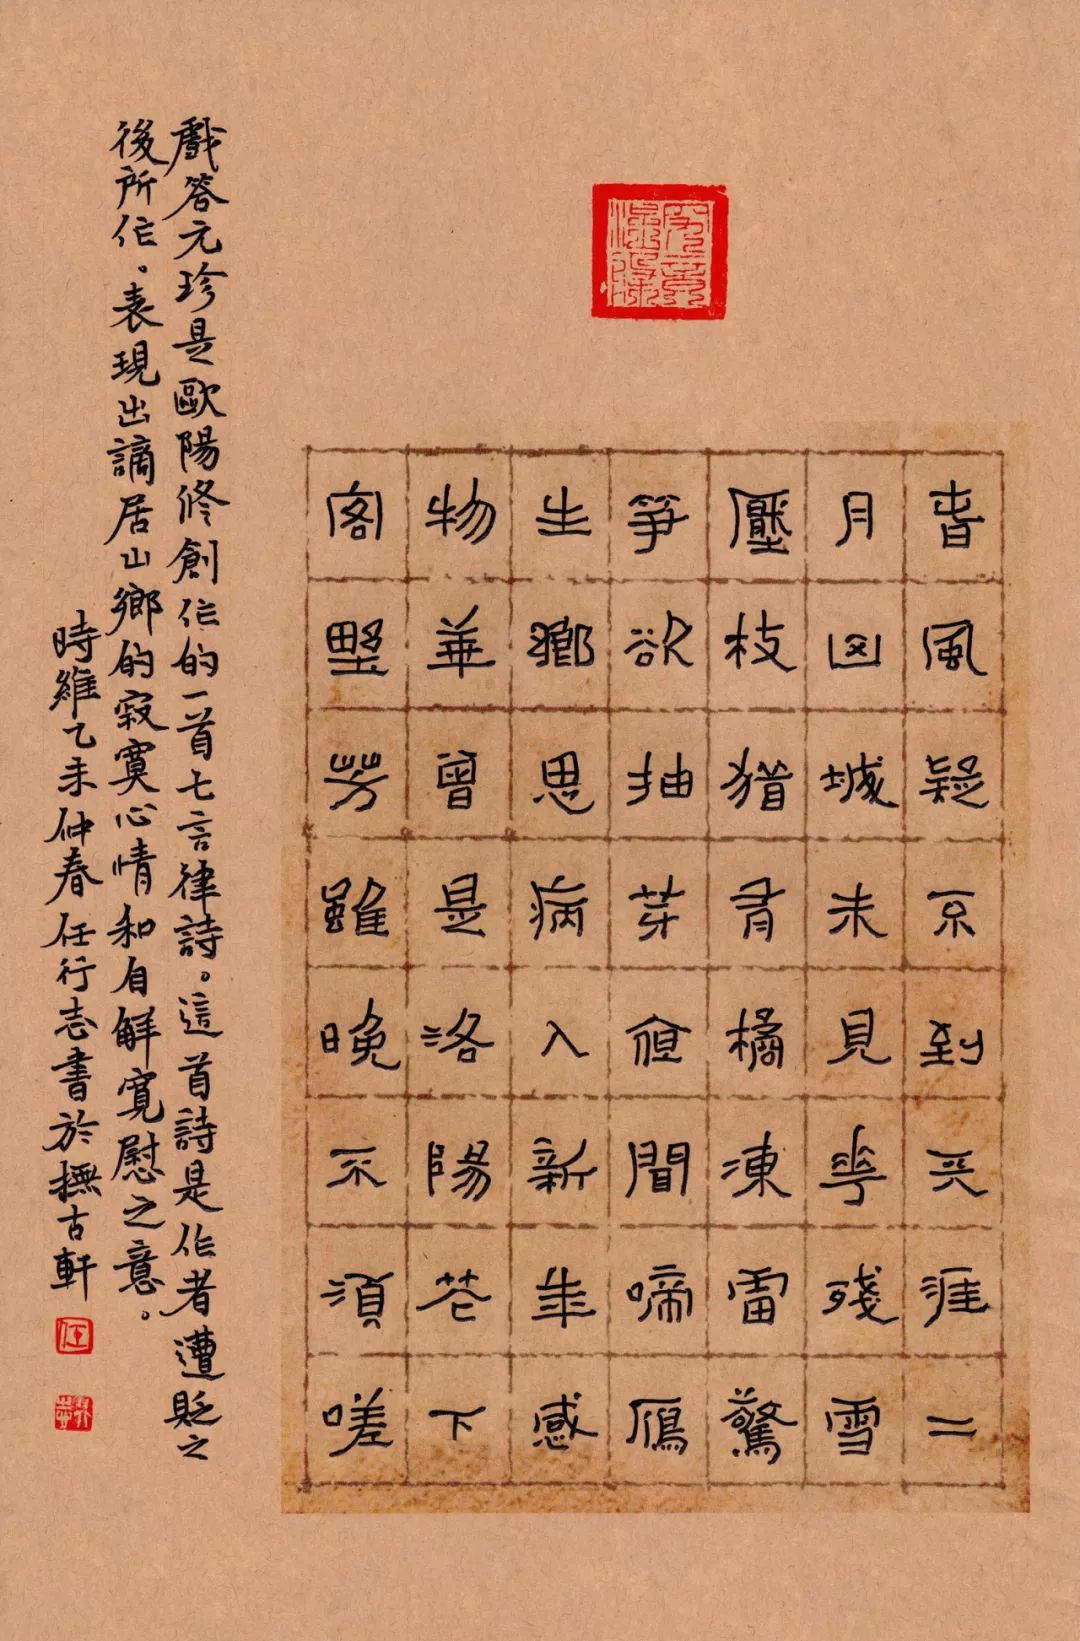 春風疑不到天涯二
月山城未見華殘雪
壓枝猶有橘凍雷驚
笋欲抽芽夜聞啼鴈
生鄉思病入新年感
物華曾是洛陽花下
客野芳雖晚不須嗟
戲答元珍是歐陽修創作的一首七言律詩。這首詩是作者遭貶之
後所作。表現出謫居山鄉的寂寞心情和自解寬慰之意。
時維乙未仲春任行志書於撫古軒